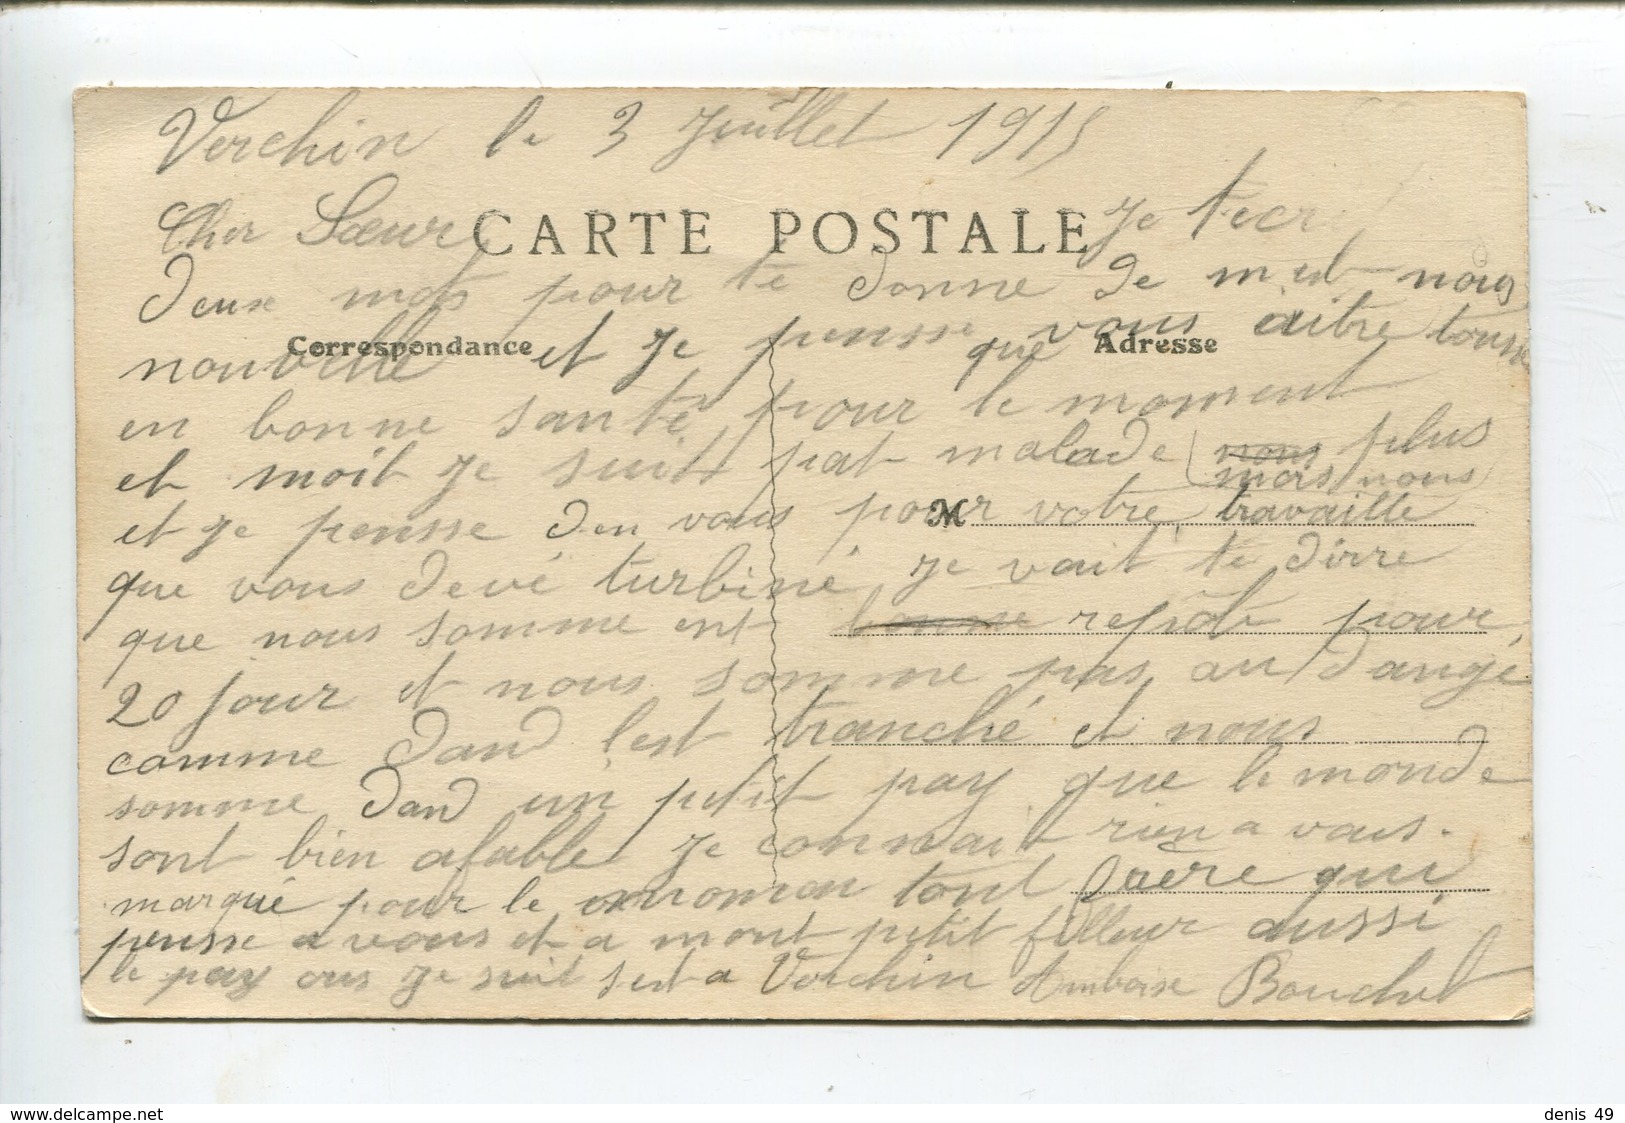 Verchin le 3 Juillet 1915
Cher Sœur CARTE POSTALE Je tecr
deux mots pour te donne de mest nous
nouvelle Correspondance et je pensse que vous aitre tousse Adresse
en bonne santé pour le moment
et moit je suit pat malade nous plus
mais nous
et je pensse den vous pour votre travaille M
que vous devé turbiné je vait te dirre
que nous somme ent bonne repôt pour
20 jour et nous somme pas au dangé
comme dand lest tranché et nous
somme dand un petit pay que le monde
sont bien afable je connait rien a vous
marqué pour le moman tont frère qui
pensse a vous et a mont petit filleur aussi
le pay ous je suit sest a Verchin Amboise Bouchet
www.delcampe.net
denis 49